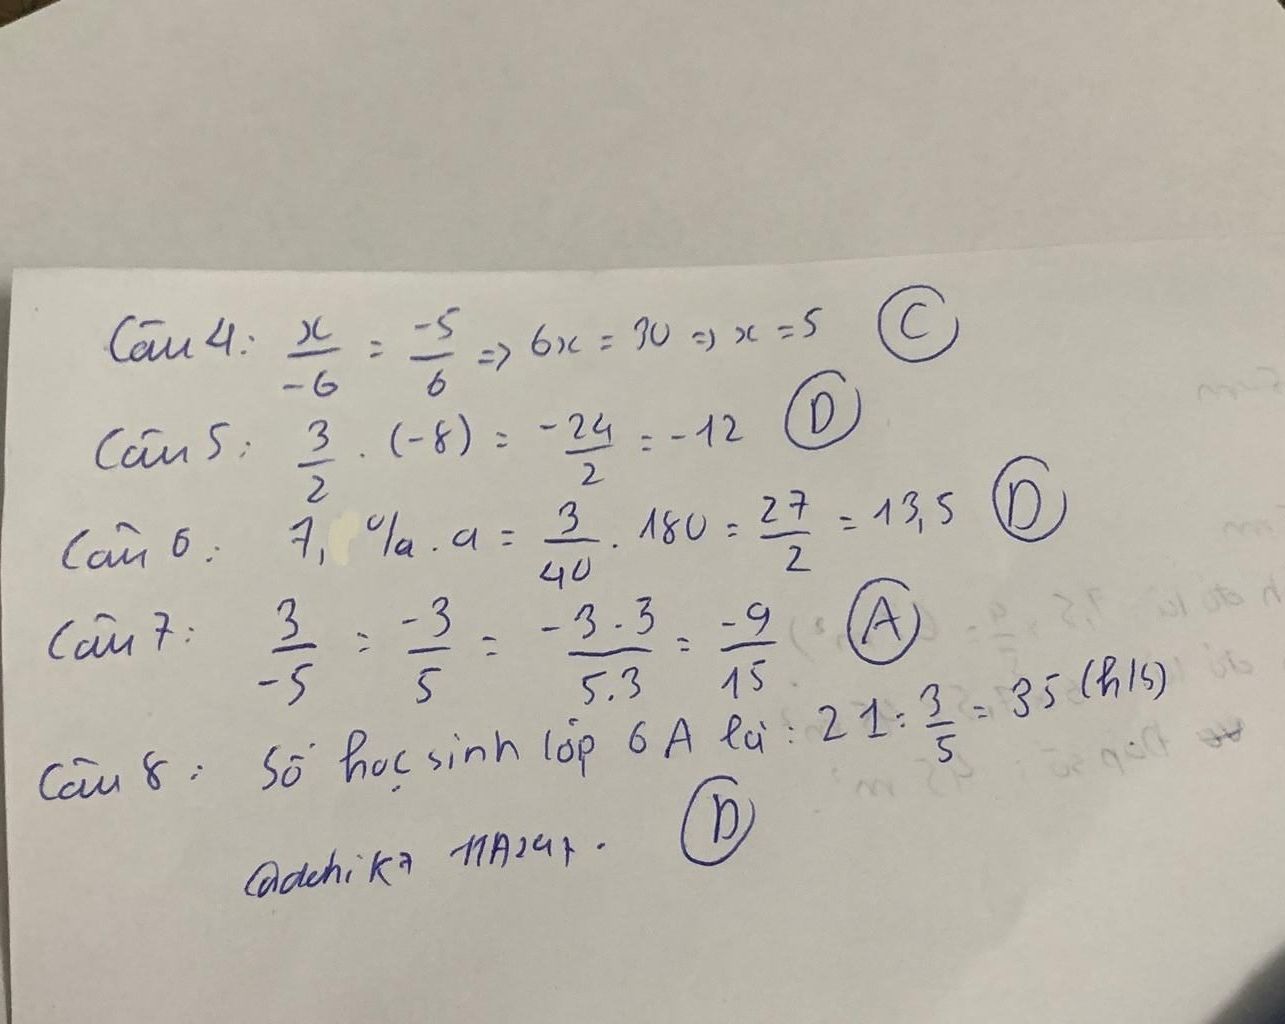 Câu 4: x/-6 = -5/6 => 6x = 30 => x = 5 C
Câu 5: 3/2 . (-8) = -24/2 = -12 D
Câu 6: 7, % . a = 3/40 . 180 = 27/2 = 13,5 D
Câu 7: 3/-5 = -3/5 = -3.3/5.3 = -9/15 A
Câu 8: Số học sinh lớp 6A là: 21 : 3/5 = 35 (h/s)
D